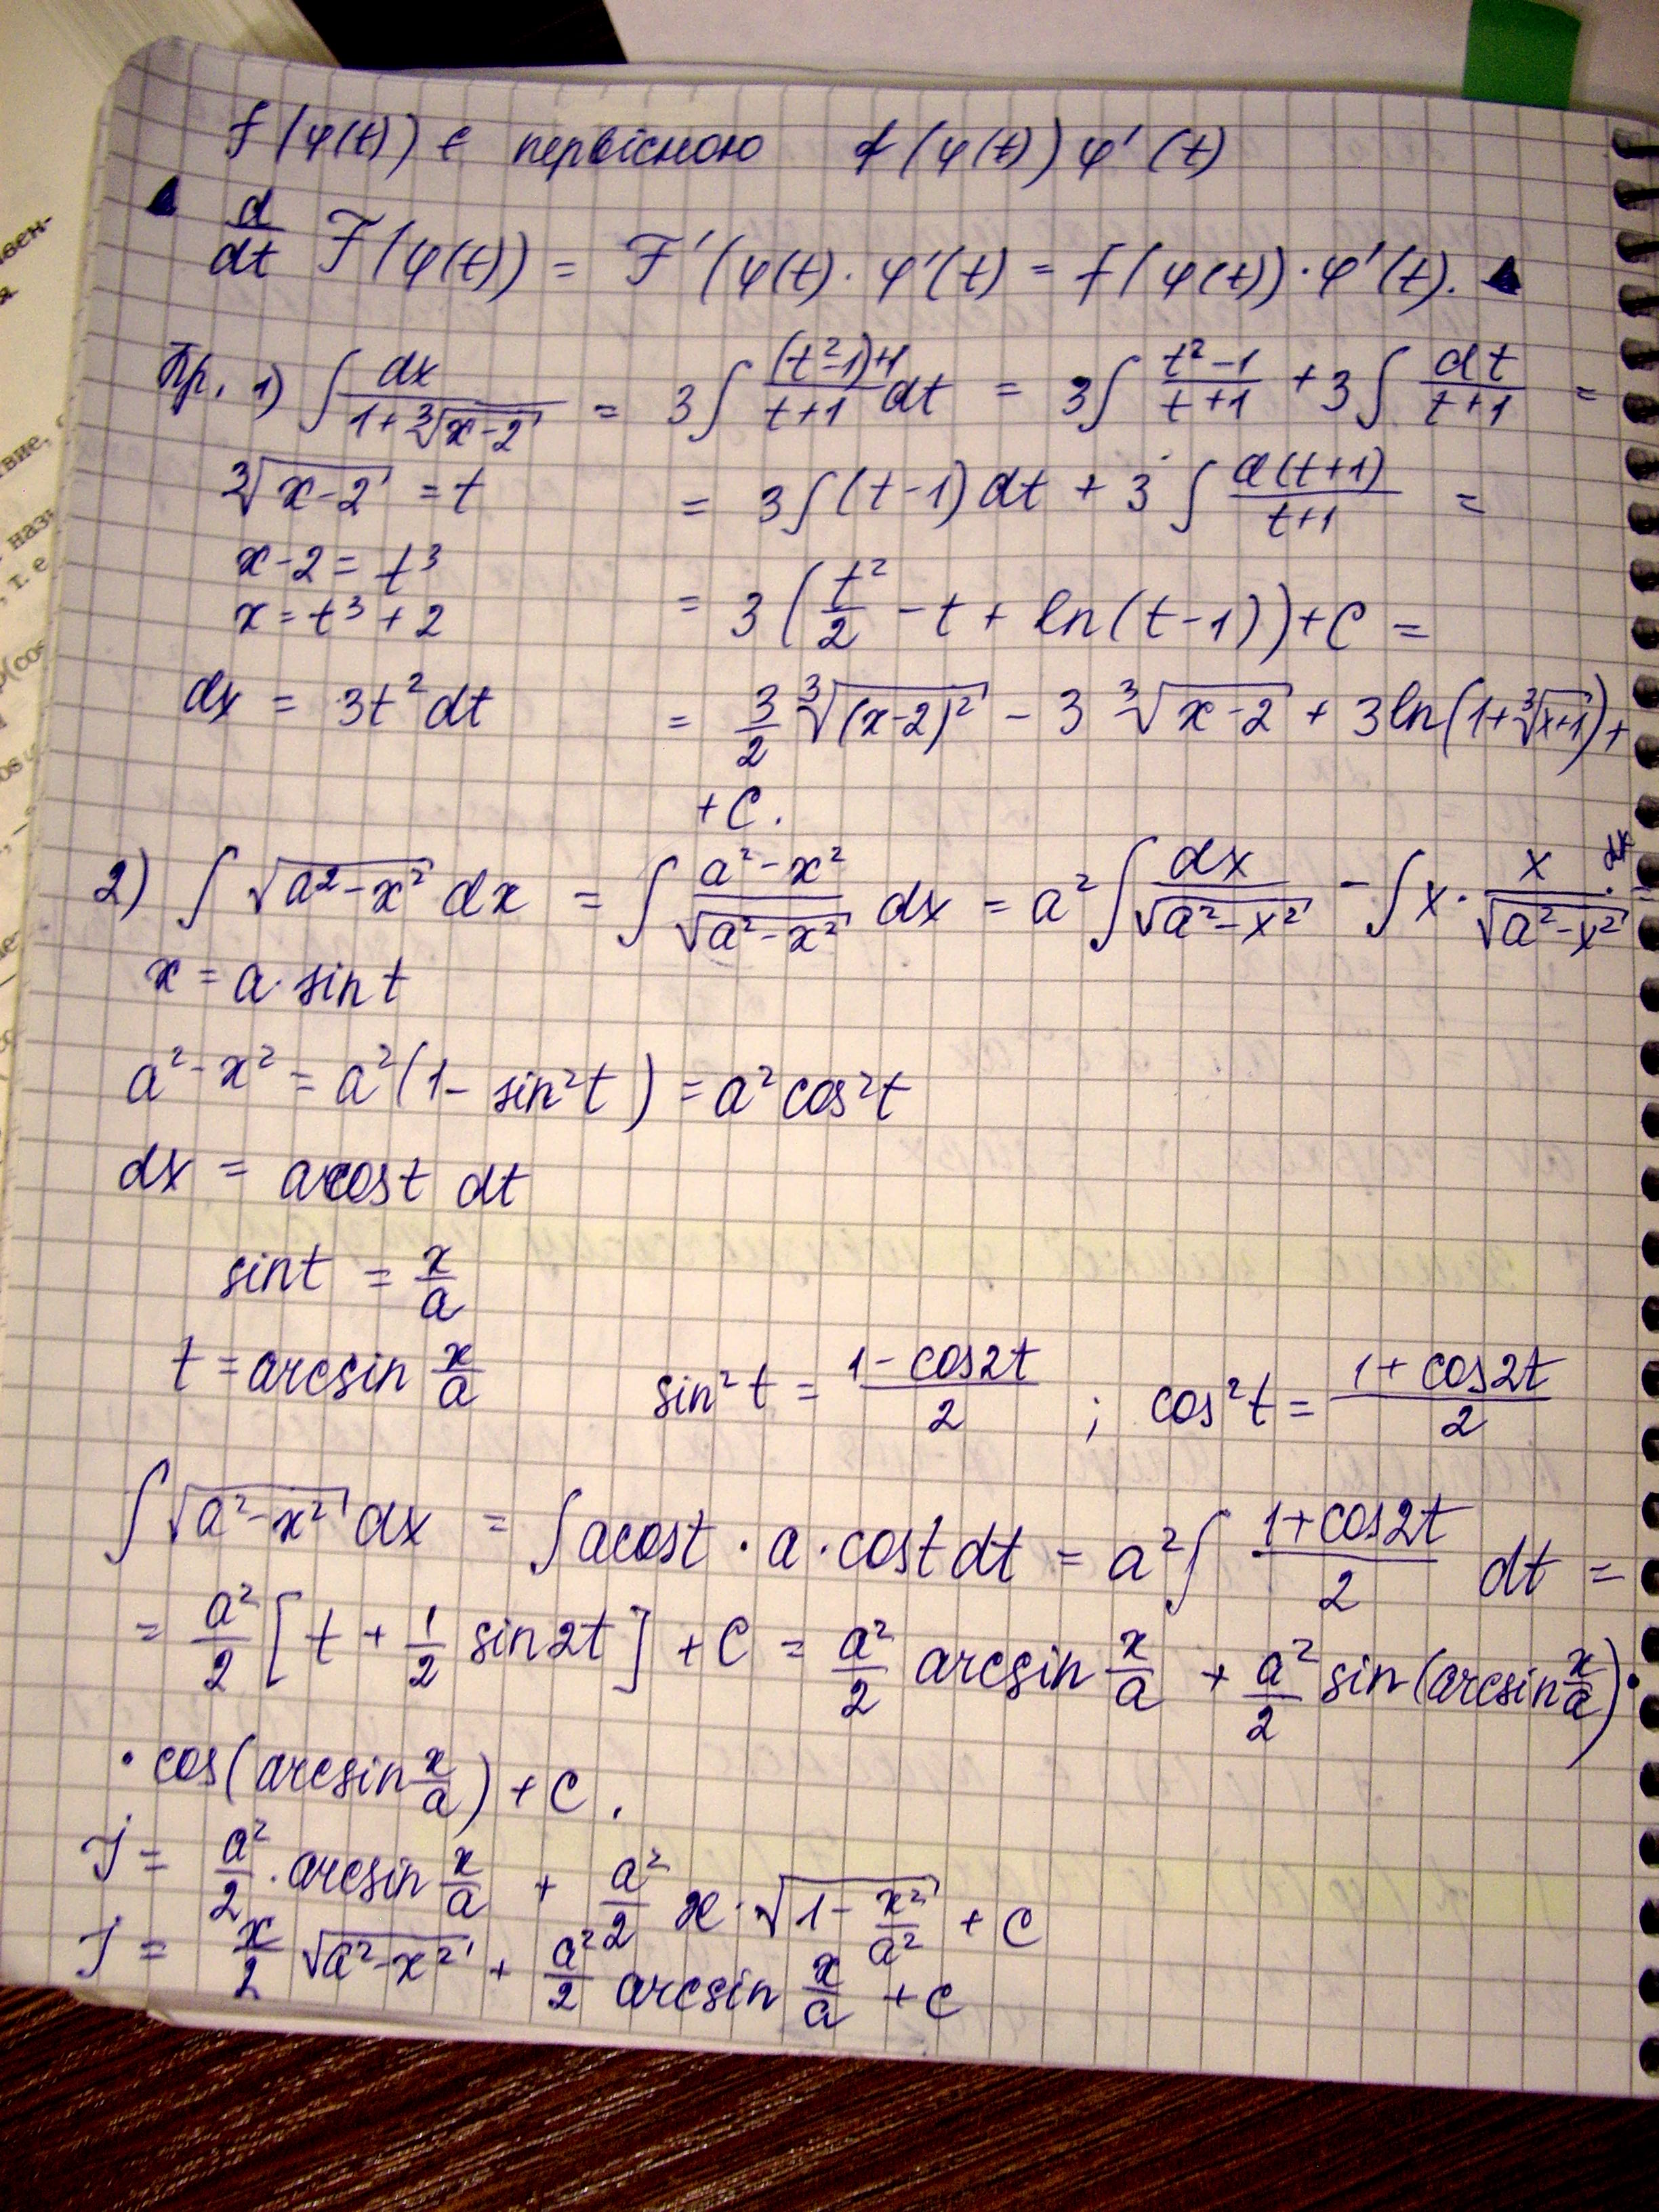 f(φ(t)) є первісною f(φ(t))φ'(t)
d/dt F(φ(t)) = F'(φ(t)·φ'(t) = f(φ(t))·φ'(t).
Пр. 1) ∫ dx/(1+∛(x-2)) = 3∫ ((t²-1)+1)/(t+1) dt = 3∫ (t²-1)/(t+1) + 3∫ dt/(t+1) =
∛(x-2) = t = 3∫(t-1)dt + 3∫ d(t+1)/(t+1) =
x-2 = t³
x = t³+2 = 3(t²/2 - t + ln(t-1))+C =
dx = 3t²dt = 3/2 ∛((x-2)²) - 3 ∛(x-2) + 3ln(1+∛(x+1))+
+C.
2) ∫ √(a²-x²) dx = ∫ (a²-x²)/√(a²-x²) dx = a² ∫ dx/√(a²-x²) - ∫x· x/√(a²-x²) · dx =
x = a·sint
a²-x² = a²(1-sin²t) = a²cos²t
dx = acost dt
sint = x/a
t = arcsin x/a sin²t = (1-cos2t)/2 ; cos²t = (1+cos2t)/2
∫ √(a²-x²) dx = ∫acost · a·cost dt = a² ∫ (1+cos2t)/2 dt =
= a²/2 [t + 1/2 sin2t] + C = a²/2 arcsin x/a + a²/2 sin(arcsin x/a)·
·cos(arcsin x/a) + C.
J = a²/2 · arcsin x/a + a²/2 x·√(1 - x²/a²) + C
J = x/2 √(a²-x²) + a²/2 arcsin x/a + C
твие,
наз
т. е